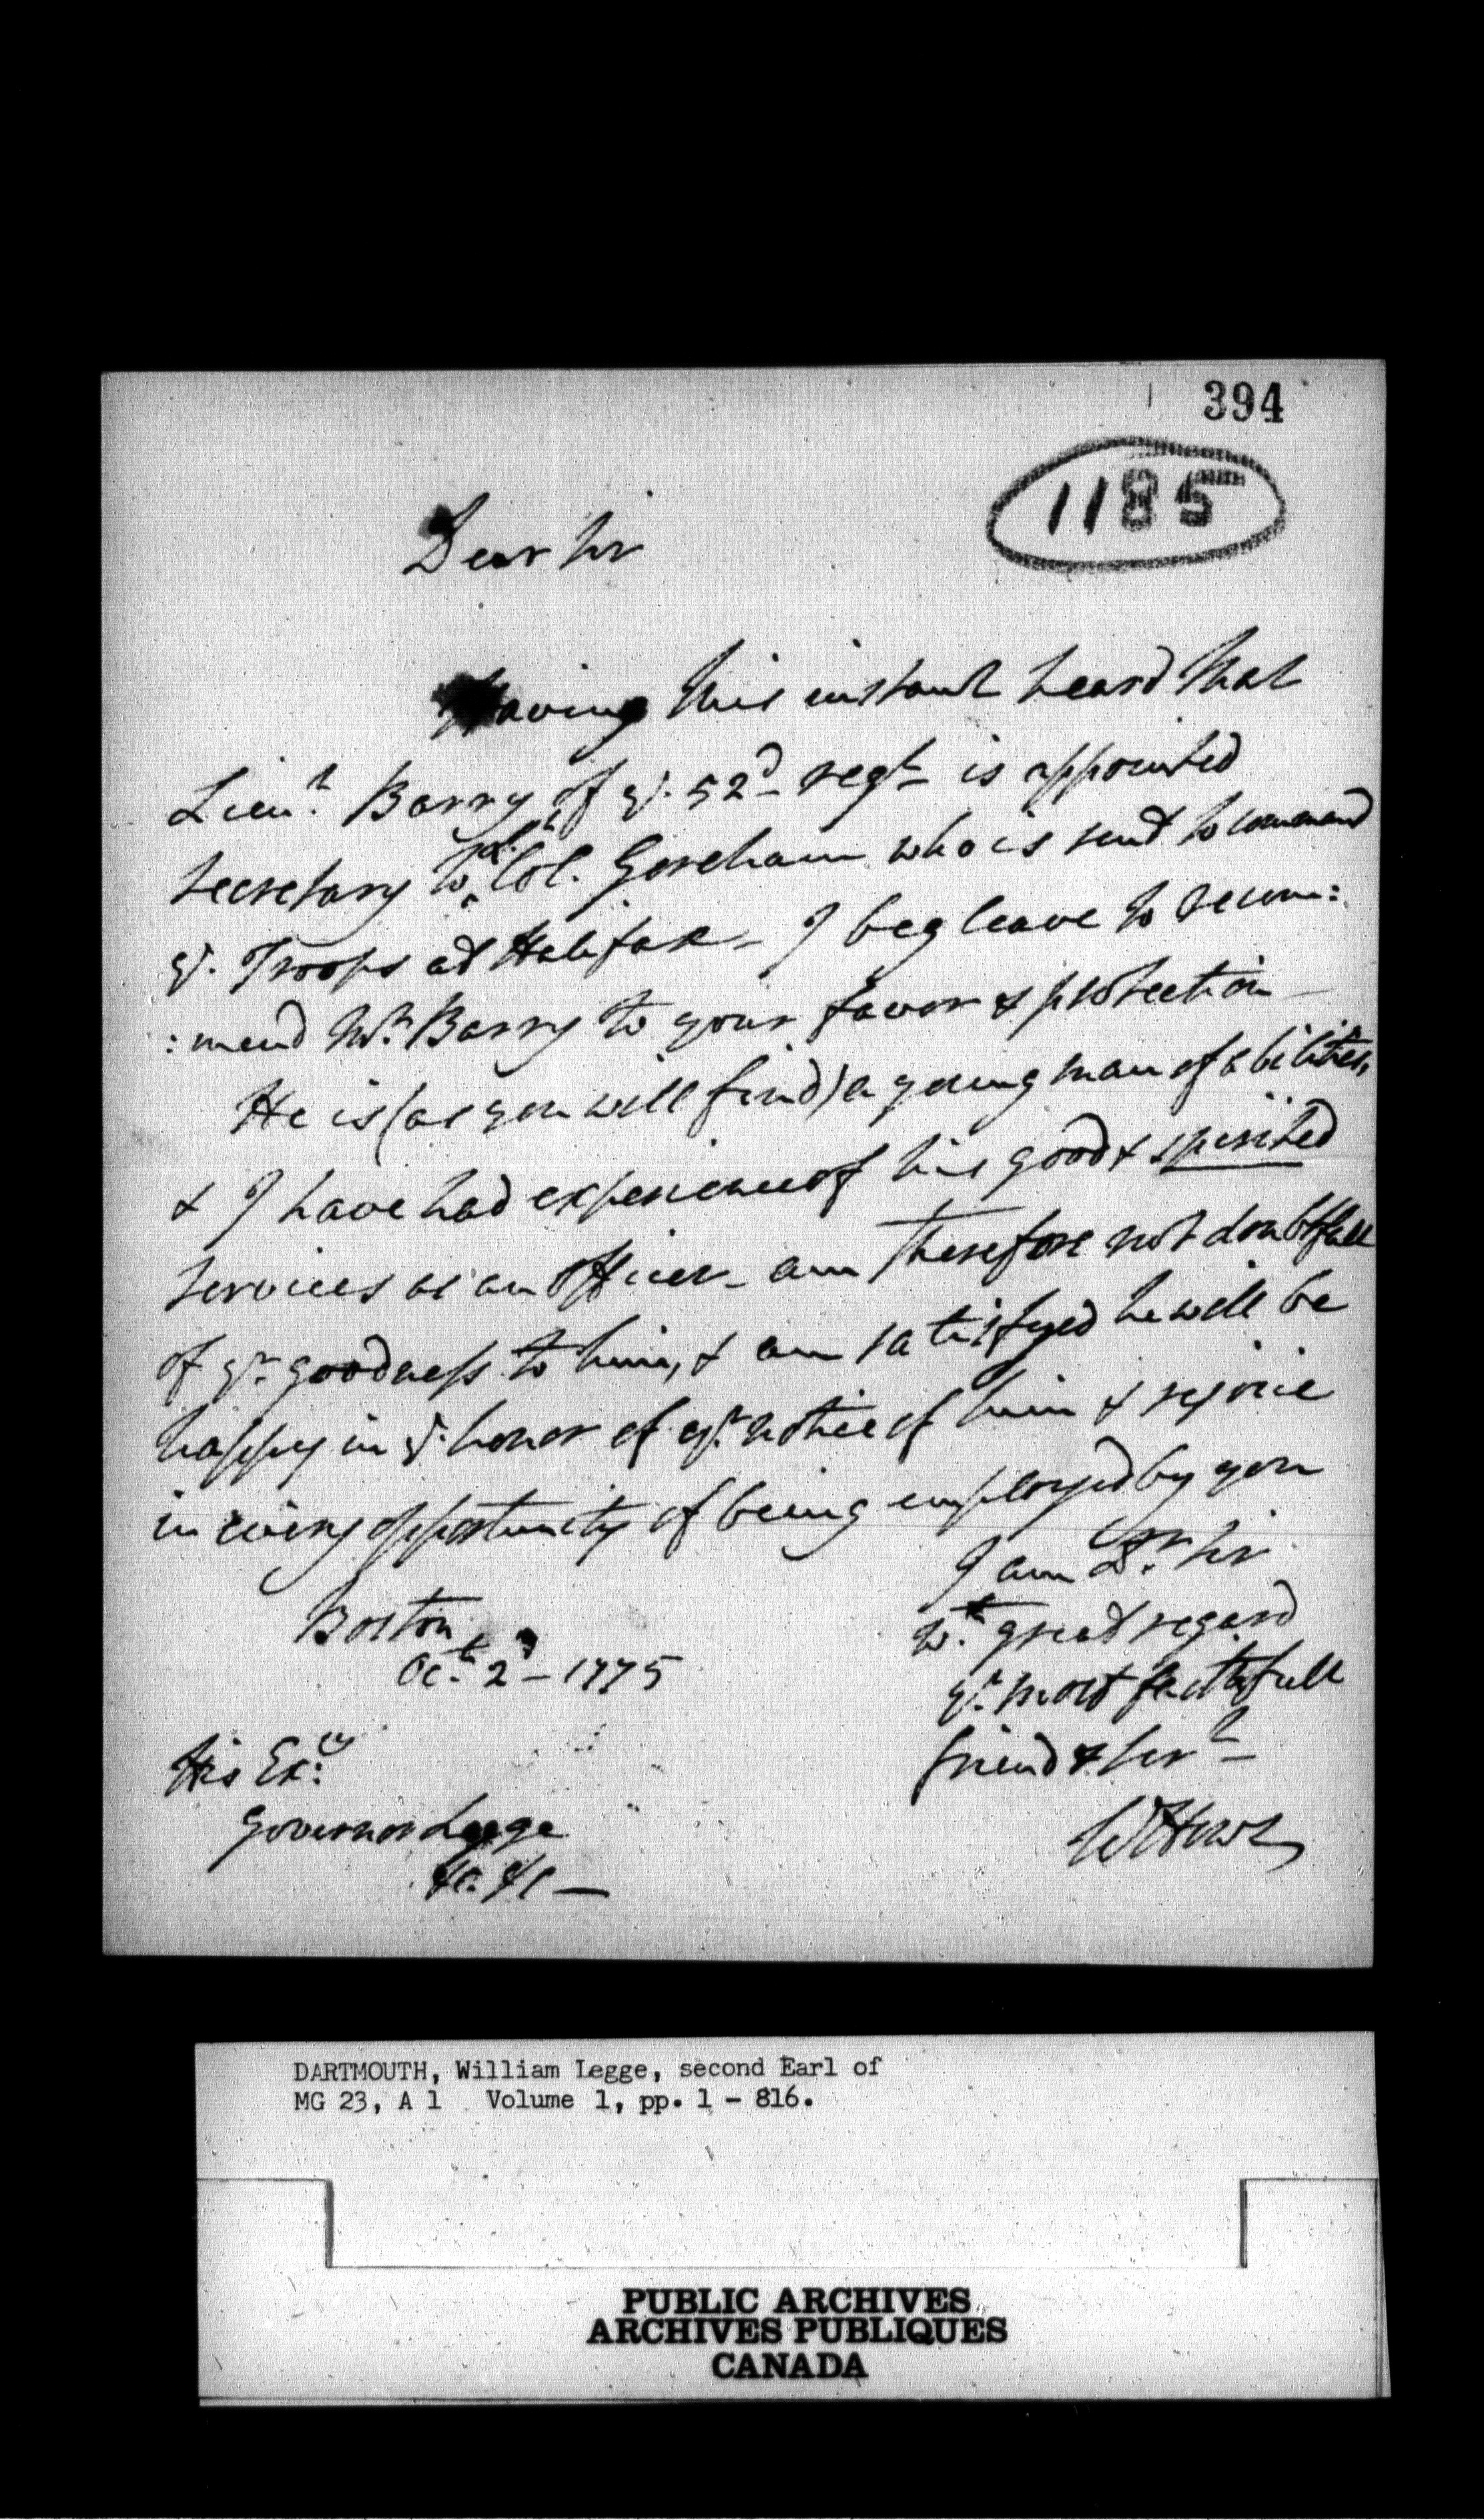 394
1185
Dear Sir
Having this instant heard that
Lieut. Barry of ye. 52d regt is appointed
Secretary to Lt. Col. Goreham who is sent to command
ye. Troops at Halifax - I beg leave to recom:
:mend Mr. Barry to your favor & protection -
He is (as you will find) a young man of abilities,
& I have had experience of his good & spirited
services as an officer - am therefore not doubtfull
of yr. goodness to him, & am satisfyed he will be
happy in ye. honor of yr. notice of him & rejoice
in every opportunity of being employed by you
I am Dr. Sir
wt. great regard
yr. most faithfull
friend & servt
Boston
Oct. 2d - 1775
His Excy.
Governor Legge
&c. &c -
W Howe
DARTMOUTH, William Legge, second Earl of
MG 23, A 1 Volume 1, pp. 1 - 816.
PUBLIC ARCHIVES
ARCHIVES PUBLIQUES
CANADA